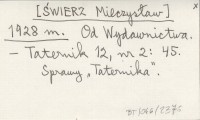 [ŚWIERZ Mieczysław] x
1928 m. Od Wydawnictwa.
- Taternik 12, nr 2: 45.
Sprawy „Taternika".